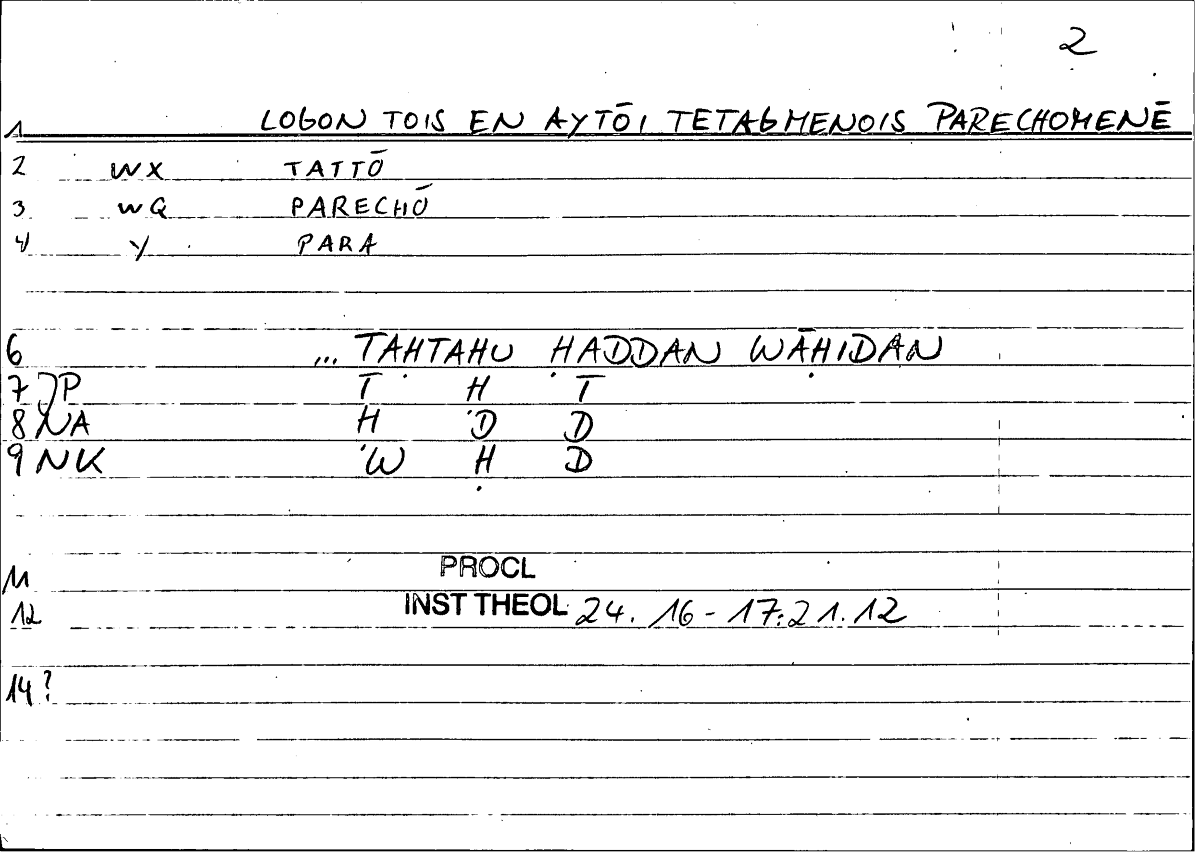 2
1 LOGON TOIS EN AYTŌI TETAGMENOIS PARECHOMENĒ
2 WX TATTŌ
3 WQ PARECHŌ
4 Y PARA
6 ... TAḤTAHU ḤADDAN WĀḤIDAN
7 JP T Ḥ T
8 NA Ḥ D D
9 NK W Ḥ D
11 PROCL
12 INST THEOL 24. 16-17:21.12
14 ?